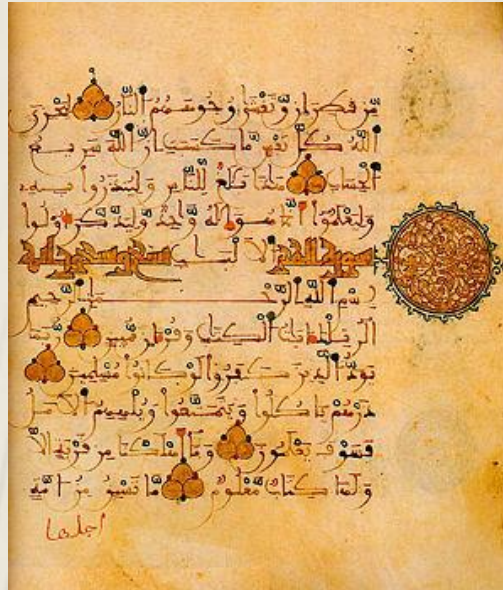 مّن قطران وتغشى وجوههم النار ليجزي
الله كل نفس ما كسبت إن الله سريع
الحساب هذا بلغ للناس ولينذروا به
وليعلموا أنما هو إله واحد وليذكر أولوا
سورة الحجر الألباب تسعون وتسع آية
بسم الله الرحمن الرحيم
الر تلك آيت الكتب وقرءان مبين ربما
يود الذين كفروا لو كانوا مسلمين
ذرهم ياكلوا ويتمتعوا ويلههم الأمل
فسوف يعلمون وما أهلكنا من قرية إلا
ولها كتاب معلوم ما تسبق من أمة
أجلها